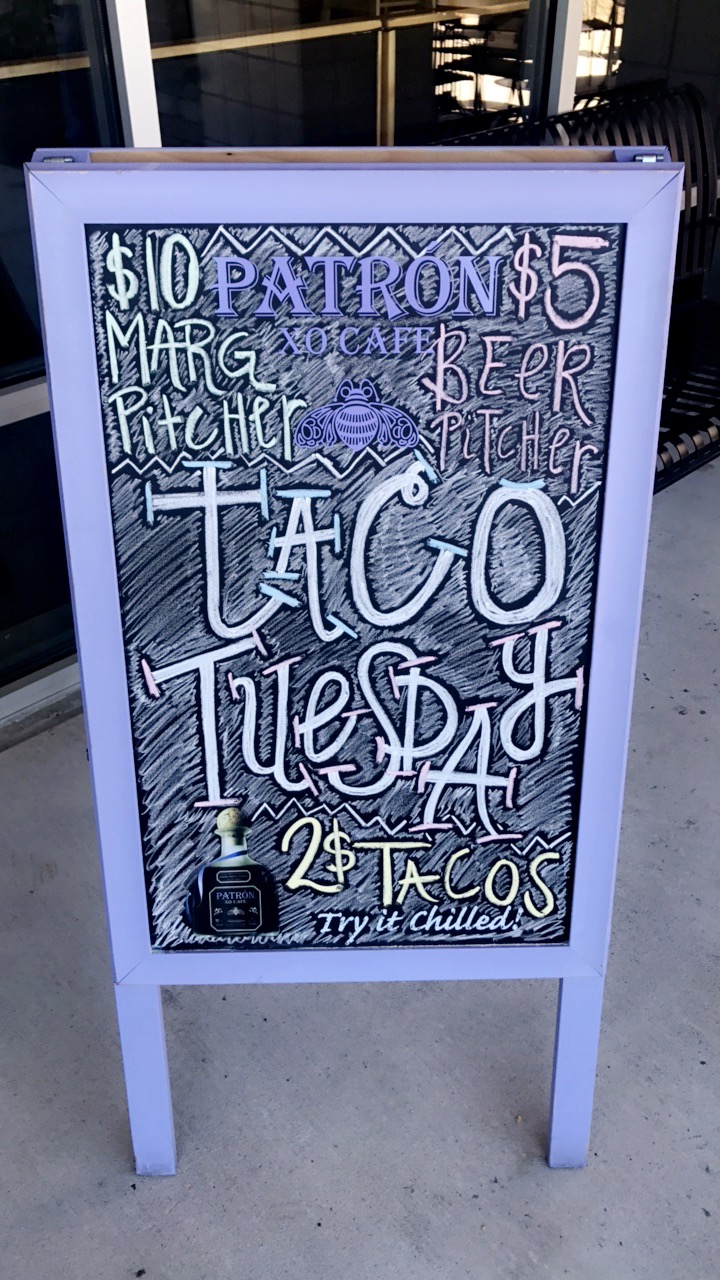 $10
MARG
PitcHer
PATRÓN
XO CAFE
$5
BEER
PiTCHer
TACO
TuesDAy
2$ TACOS
PATRÓN
XO CAFE
Try it Chilled!